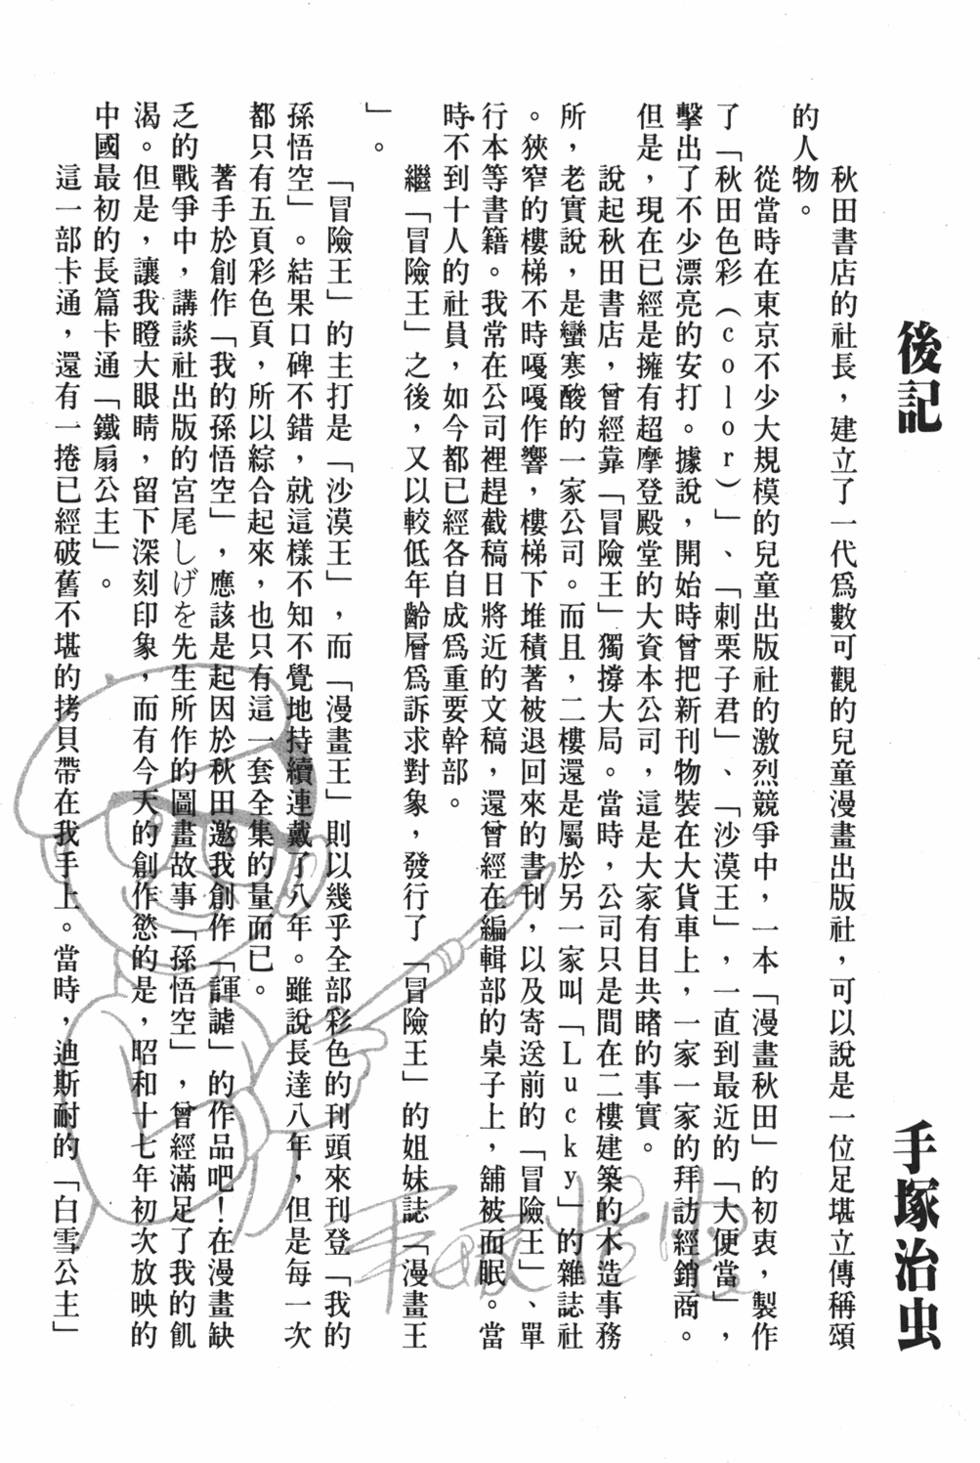 後記
手塚治虫
秋田書店的社長，建立了一代爲數可觀的兒童漫畫出版社，可以說是一位足堪立傳稱頌
的人物。
從當時在東京不少大規模的兒童出版社的激烈競爭中，一本「漫畫秋田」的初衷，製作
了「秋田色彩（color）」、「刺栗子君」、「沙漠王」，一直到最近的「大便當」，
擊出了不少漂亮的安打。據說，開始時曾把新刊物裝在大貨車上，一家一家的拜訪經銷商。
但是，現在已經是擁有超摩登殿堂的大資本公司，這是大家有目共睹的事實。
說起秋田書店，曾經靠「冒險王」獨撐大局。當時，公司只是間在二樓建築的木造事務
所，老實說，是蠻寒酸的一家公司。而且，二樓還是屬於另一家叫「Lucky」的雜誌社
。狹窄的樓梯不時嘎嘎作響，樓梯下堆積著被退回來的書刊，以及寄送前的「冒險王」、單
行本等書籍。我常在公司裡趕截稿日將近的文稿，還曾經在編輯部的桌子上，舖被面眠。當
時不到十人的社員，如今都已經各自成爲重要幹部。
繼「冒險王」之後，又以較低年齡層爲訴求對象，發行了「冒險王」的姐妹誌「漫畫王
」。
「冒險王」的主打是「沙漠王」，而「漫畫王」則以幾乎全部彩色的刊頭來刊登「我的
孫悟空」。結果口碑不錯，就這樣不知不覺地持續連戴了八年。雖說長達八年，但是每一次
都只有五頁彩色頁，所以綜合起來，也只有這一套全集的量而已。
著手於創作「我的孫悟空」，應該是起因於秋田邀我創作「諢謔」的作品吧！在漫畫缺
乏的戰爭中，講談社出版的宮尾しげを先生所作的圖畫故事「孫悟空」，曾經滿足了我的飢
渴。但是，讓我瞪大眼睛，留下深刻印象，而有今天的創作慾的是，昭和十七年初次放映的
中國最初的長篇卡通「鐵扇公主」。
這一部卡通，還有一捲已經破舊不堪的拷貝帶在我手上。當時，迪斯耐的「白雪公主」